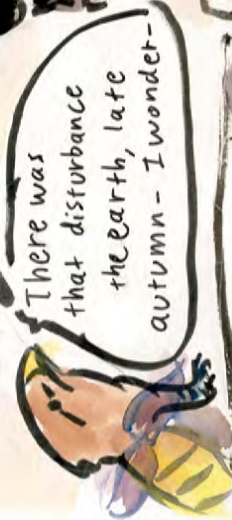 There was
that disturbance
the earth, late
autumn - I wonder-